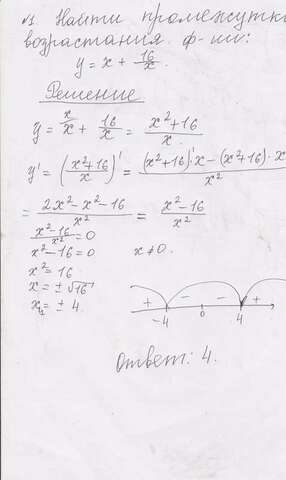 №1. Найти промежутки
возрастания ф-ии:
y = x + 16/x.
Решение
y = x/x + 16/x = x²+16/x.
y' = (x²+16/x)' = (x²+16)'·x-(x²+16)·x/x²
= 2x²-x²-16/x² = x²-16/x²
x²-16/x² = 0
x²-16=0 x≠0.
x²=16
x = ±√16
x½ = ± 4.
+ - - +
-4 0 4
Ответ: 4.